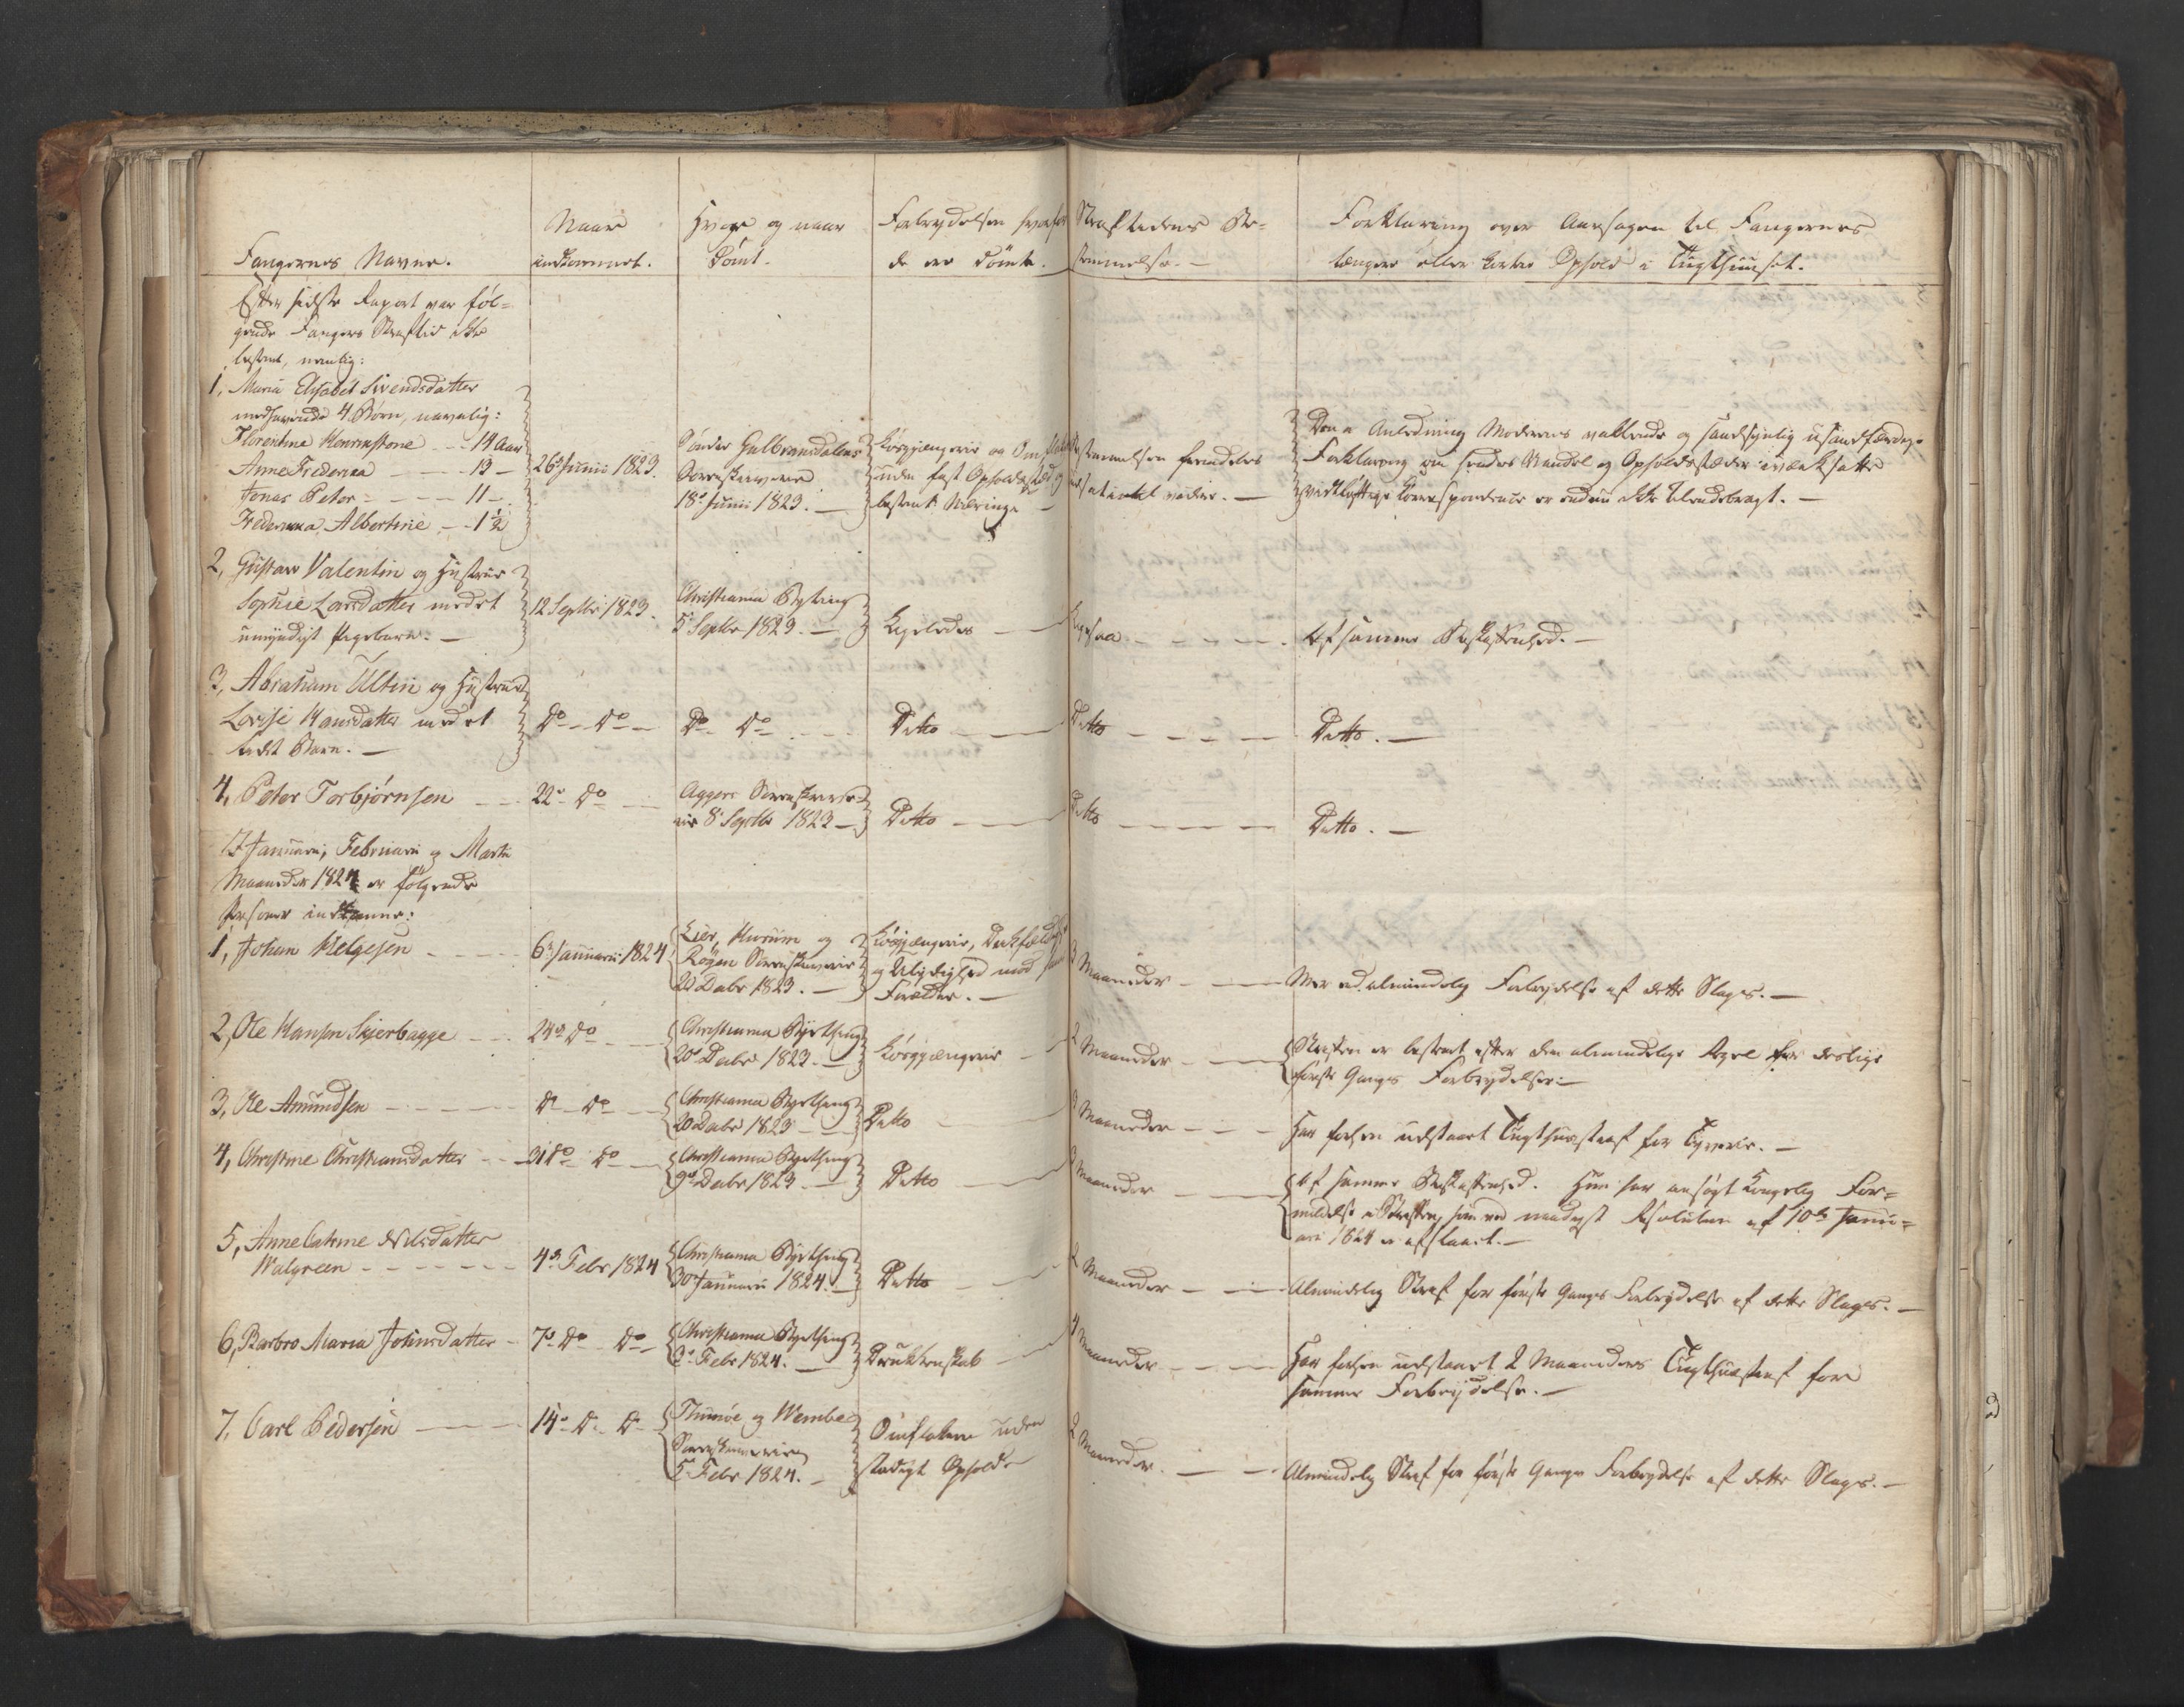 Fangernes Navne.
Naar
indkommet.
Hvor og naar
Dömt.
Forbrydelsen hvorfor
de ere dömte.
Straftidens Be-
stemmelse.
Forklaring over Aarsagen til Fangernes
længere eller kortere Ophold i Tugthuuset.
Efter sidste Raport var föl-
gende Fangers Straftid ikke
bestemt, nemlig:
1, Maria Elisabet Svendsdatter
medhavende 4 Börn, navnlig:
Florentine - - 14 Aar
Anne Fredricca - - - 13 -
Jonas Peter - - - - 11 -
Fredericca Albertine - - 1½
26d Junii 1823.
Sönder Gulbrandsdalens
Sorenskriverie
18d Junii 1823. -
Lösgjængerie og
uden fast Opholdssted og
bestemt Næring -
Bestemmelsen fremdeles
Den i Anledning Moderens vaklende og sandsynlig usandfærdige
Forklaring om hendes Vandel og Opholdsstæder iværksatte
vidtløftige Correspondence er endnu ikke tilendebragt. -
2, Gustav Valentin og Hustrue
Sophie Larsdatter med et
umyndigt Pigebarn. -
12 Septbr 1823.
Christiania Byting
5 Septbr 1823. -
Ligeledes -
Ligesaa - - - - -
Af samme Beskaffenhed. -
3, Abraham Ultin og Hustrue
Lovise Hansdatter med et
födt Barn. -
Do - Do -
Do - Do - - -
Ditto -
Ditto - - - -
Ditto. -
4, Peter Torbjörnsen - -
22d Do -
Aggers Sorenskrive-
rie 8d Septbr 1823 -
Ditto -
Ditto - - - -
Ditto. -
I Januari, Februari og Martii
Maaneder 1824 er følgende
Personer indkomne:
1, Johan Helgesen - - - -
6d Januari 1824
Lier, Hurum og
Røgen Sorenskriverie
22 Decbr 1823. -
Lösgjængerie,
og Ulydighed mod sine
Forældre. -
3 Maaneder - -
Mer end almindelig Forbrydelse af dette Slags. -
2, Ole Hansen Skjerbagge - -
24d Do - -
Christiania Byething
20d Decbr 1823. -
Lösgjængerie -
2 Maaneder - -
Straffen er bestemt efter den almindelige Regel for deslige
förste Ganges Forbrydelser. -
3, Ole Amundsen - - - -
Do - Do -
Christiania Byething
20 Decbr 1823 - -
Ditto -
3 Maaneder - - -
Har forhen udstaaet Tugthuusstraf for Tyverie. -
4, Christine Christiansdatter - -
31d Do -
Christiania Byething
9d Decbr 1823. -
Ditto -
3 Maaneder - -
Af samme Beskaffenhed. Hun har ansögt Kongelig For-
mildelse i Straffen, som ved naadigst Resolution af 10de Janu-
ari 1824 er afslaaet. -
5, Anne Catrine Nilsdatter
Walgreen - - - - - -
4d Febr 1824
Christiania Byething
30 Januari 1824. -
Ditto -
2 Maaneder - -
Almindelig Straf for förste Ganges Forbrydelse af dette Slags. -
6, Barbro Maria Johnsdatter -
7d Do - Do -
Christiania Byething
3d Febr 1824. -
Drukkenskab -
4 Maaneder - - -
Har forhen udstaaet 2 Maaneders Tugthuusstraf for
samme Forbrydelse. -
7, Carl Pedersen -
14d Do - Do -
Thunöe og Wembe
Sorenskriverie
5 Febr 1824. -
Omflakken uden
stadigt Ophold -
2 Maaneder. - -
Almindelig Straf for förste Ganges Forbrydelse af dette Slags. -